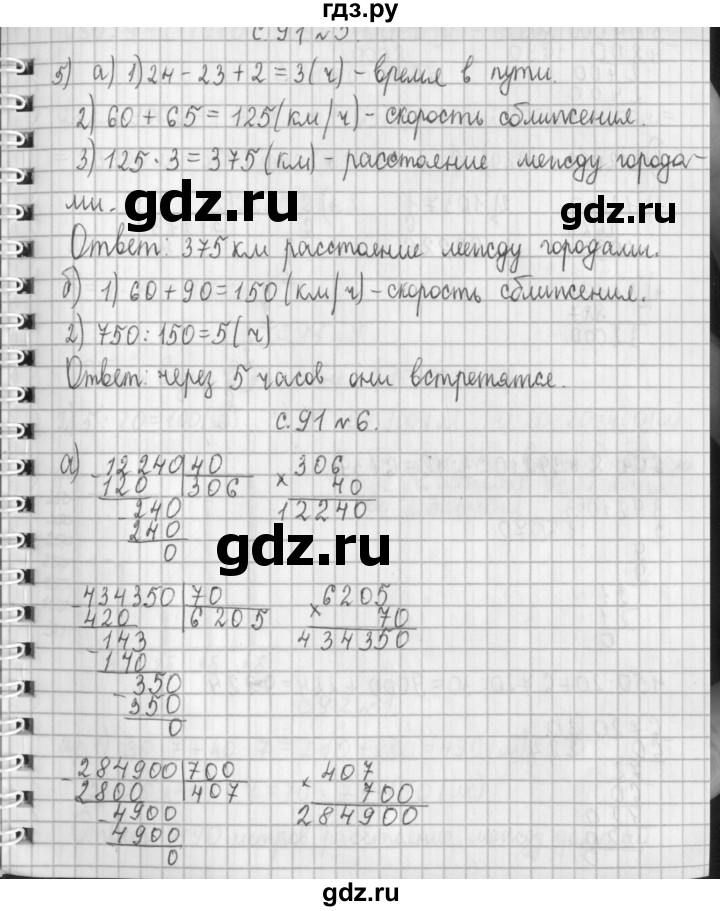 гдз.ру
с.91 №5.
5) а) 1) 24 - 23 + 2 = 3 (ч) - время в пути.
2) 60 + 65 = 125 (км/ч) - скорость сближения.
3) 125 · 3 = 375 (км) - расстояние между города-
ми.
gdz.ru
gdz.ru
Ответ: 375 км расстояние между городами.
б) 1) 60 + 90 = 150 (км/ч) - скорость сближения.
2) 750 : 150 = 5 (ч)
Ответ: через 5 часов они встретятся.
с.91 №6.
а) 12240 | 40 × 306
120 | 306 40
240 12240
240
0
gdz.ru
gdz.ru
434350 | 70 × 6205
420 | 6205 70
143 434350
140
350
350
0
284900 | 700 × 407
2800 | 407 700
4900 284900
4900
0
gdz.ru